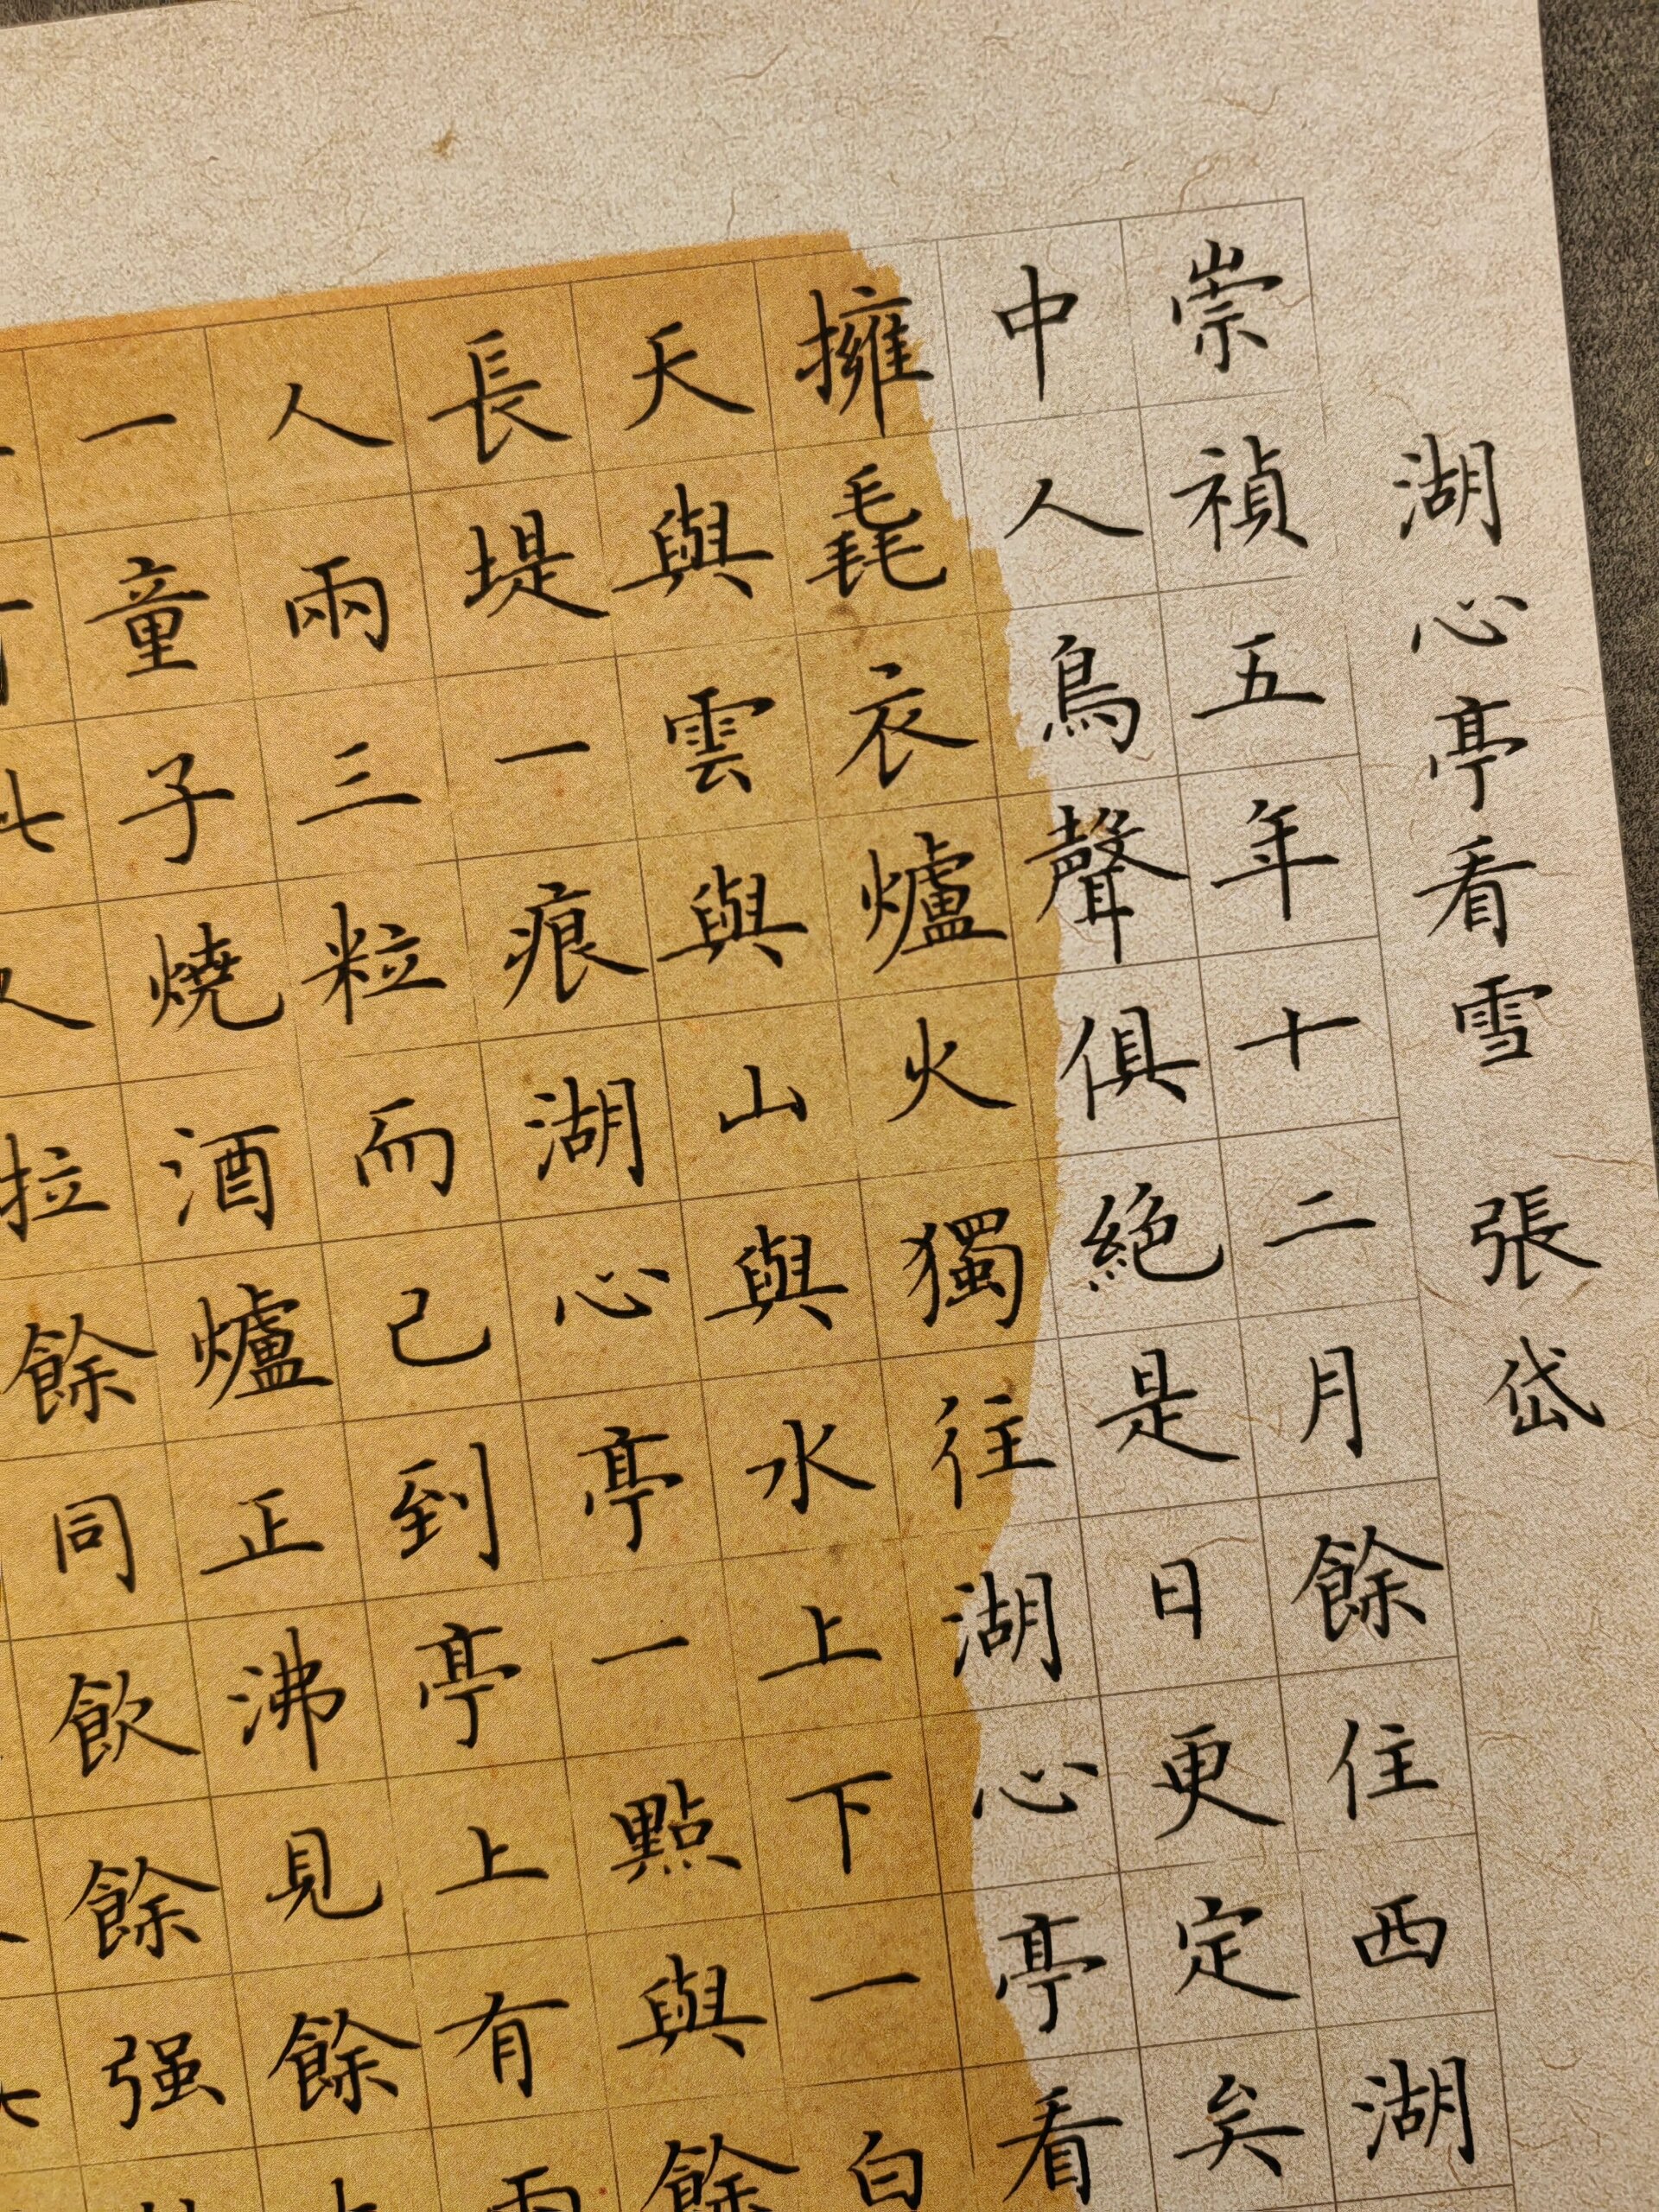 湖心亭看雪 張岱
崇禎五年十二月餘住西湖
中人鳥聲俱絕是日更定矣
擁毳衣爐火獨往湖心亭看
天與雲與山與水上下一白
長堤一痕湖心亭一點與餘
人兩三粒而己到亭上有兩
一童子燒酒爐正沸見餘
拉餘同飲餘强